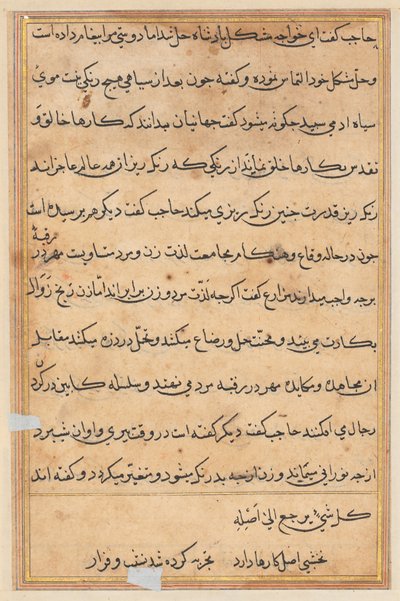 حاجب گفت ای خواجه مشکل پادشاه حل شد اما دوستی مرا پیغام داده است
و حل مشکل خود التماس نموده و گفته چون بعد از سیاهی هیچ رنگی نیست موی
سیاه آدمی سپید چگونه میشود گفت جهانیان میدانند که کارها خالق و
تقدس بکارها خلق نماند از رنگی که رنگ ریز از همه عالم عاجز اند
رنگ ریز قدرت چنین رنگ ریزی میکند حاجب گفت دیگر هم پرسیده است
چون در حاله وقاع و هنکام مجامعت لذت زن و مرد متساویست مهر در رقبهٔ
برچه واجب میدارند بزارع گفت اگرچه لذت مرد و زن برابر اند اما زن رنج زوال
بکارت می بیند و محنت حمل و رضاع میکشد و تحمل درد زه میکند مقابل
آن مجاهده و مکایده مهر در رقبه مرد می نهند و سلسله کابین در گردن
رجال می افکنند حاجب گفت دیگر گفته است در وقت پیری و اوان شیب مرد
از چه نورانی میماند و زن از چه بد رنگ میشود و متغیر میگردد و گفته اند
کل شیء یرجع الی اصله
نخشبی اصل کارها دارد تجربه کرده شد نشیب و فراز